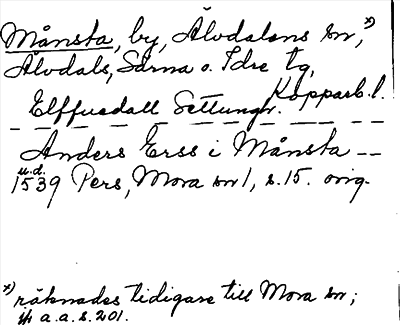 Månsta, by, Älvdalens sn,x)
Älvdals, Särna o. Idre tg,
Kopparb.l.
Elffuedall Settungr.
Anders Erss i Månsta --
u.d.
1539 Pers, Mora sn 1, s.15. orig.
x) räknades tidigare till Mora sn;
jfr a.a.s.201.